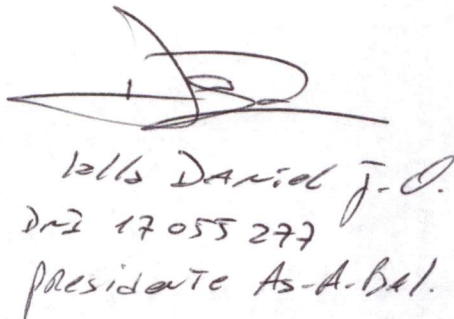 Lalla Daniel J.O.
DNI 17 055 277
Presidente As-A-Bal.